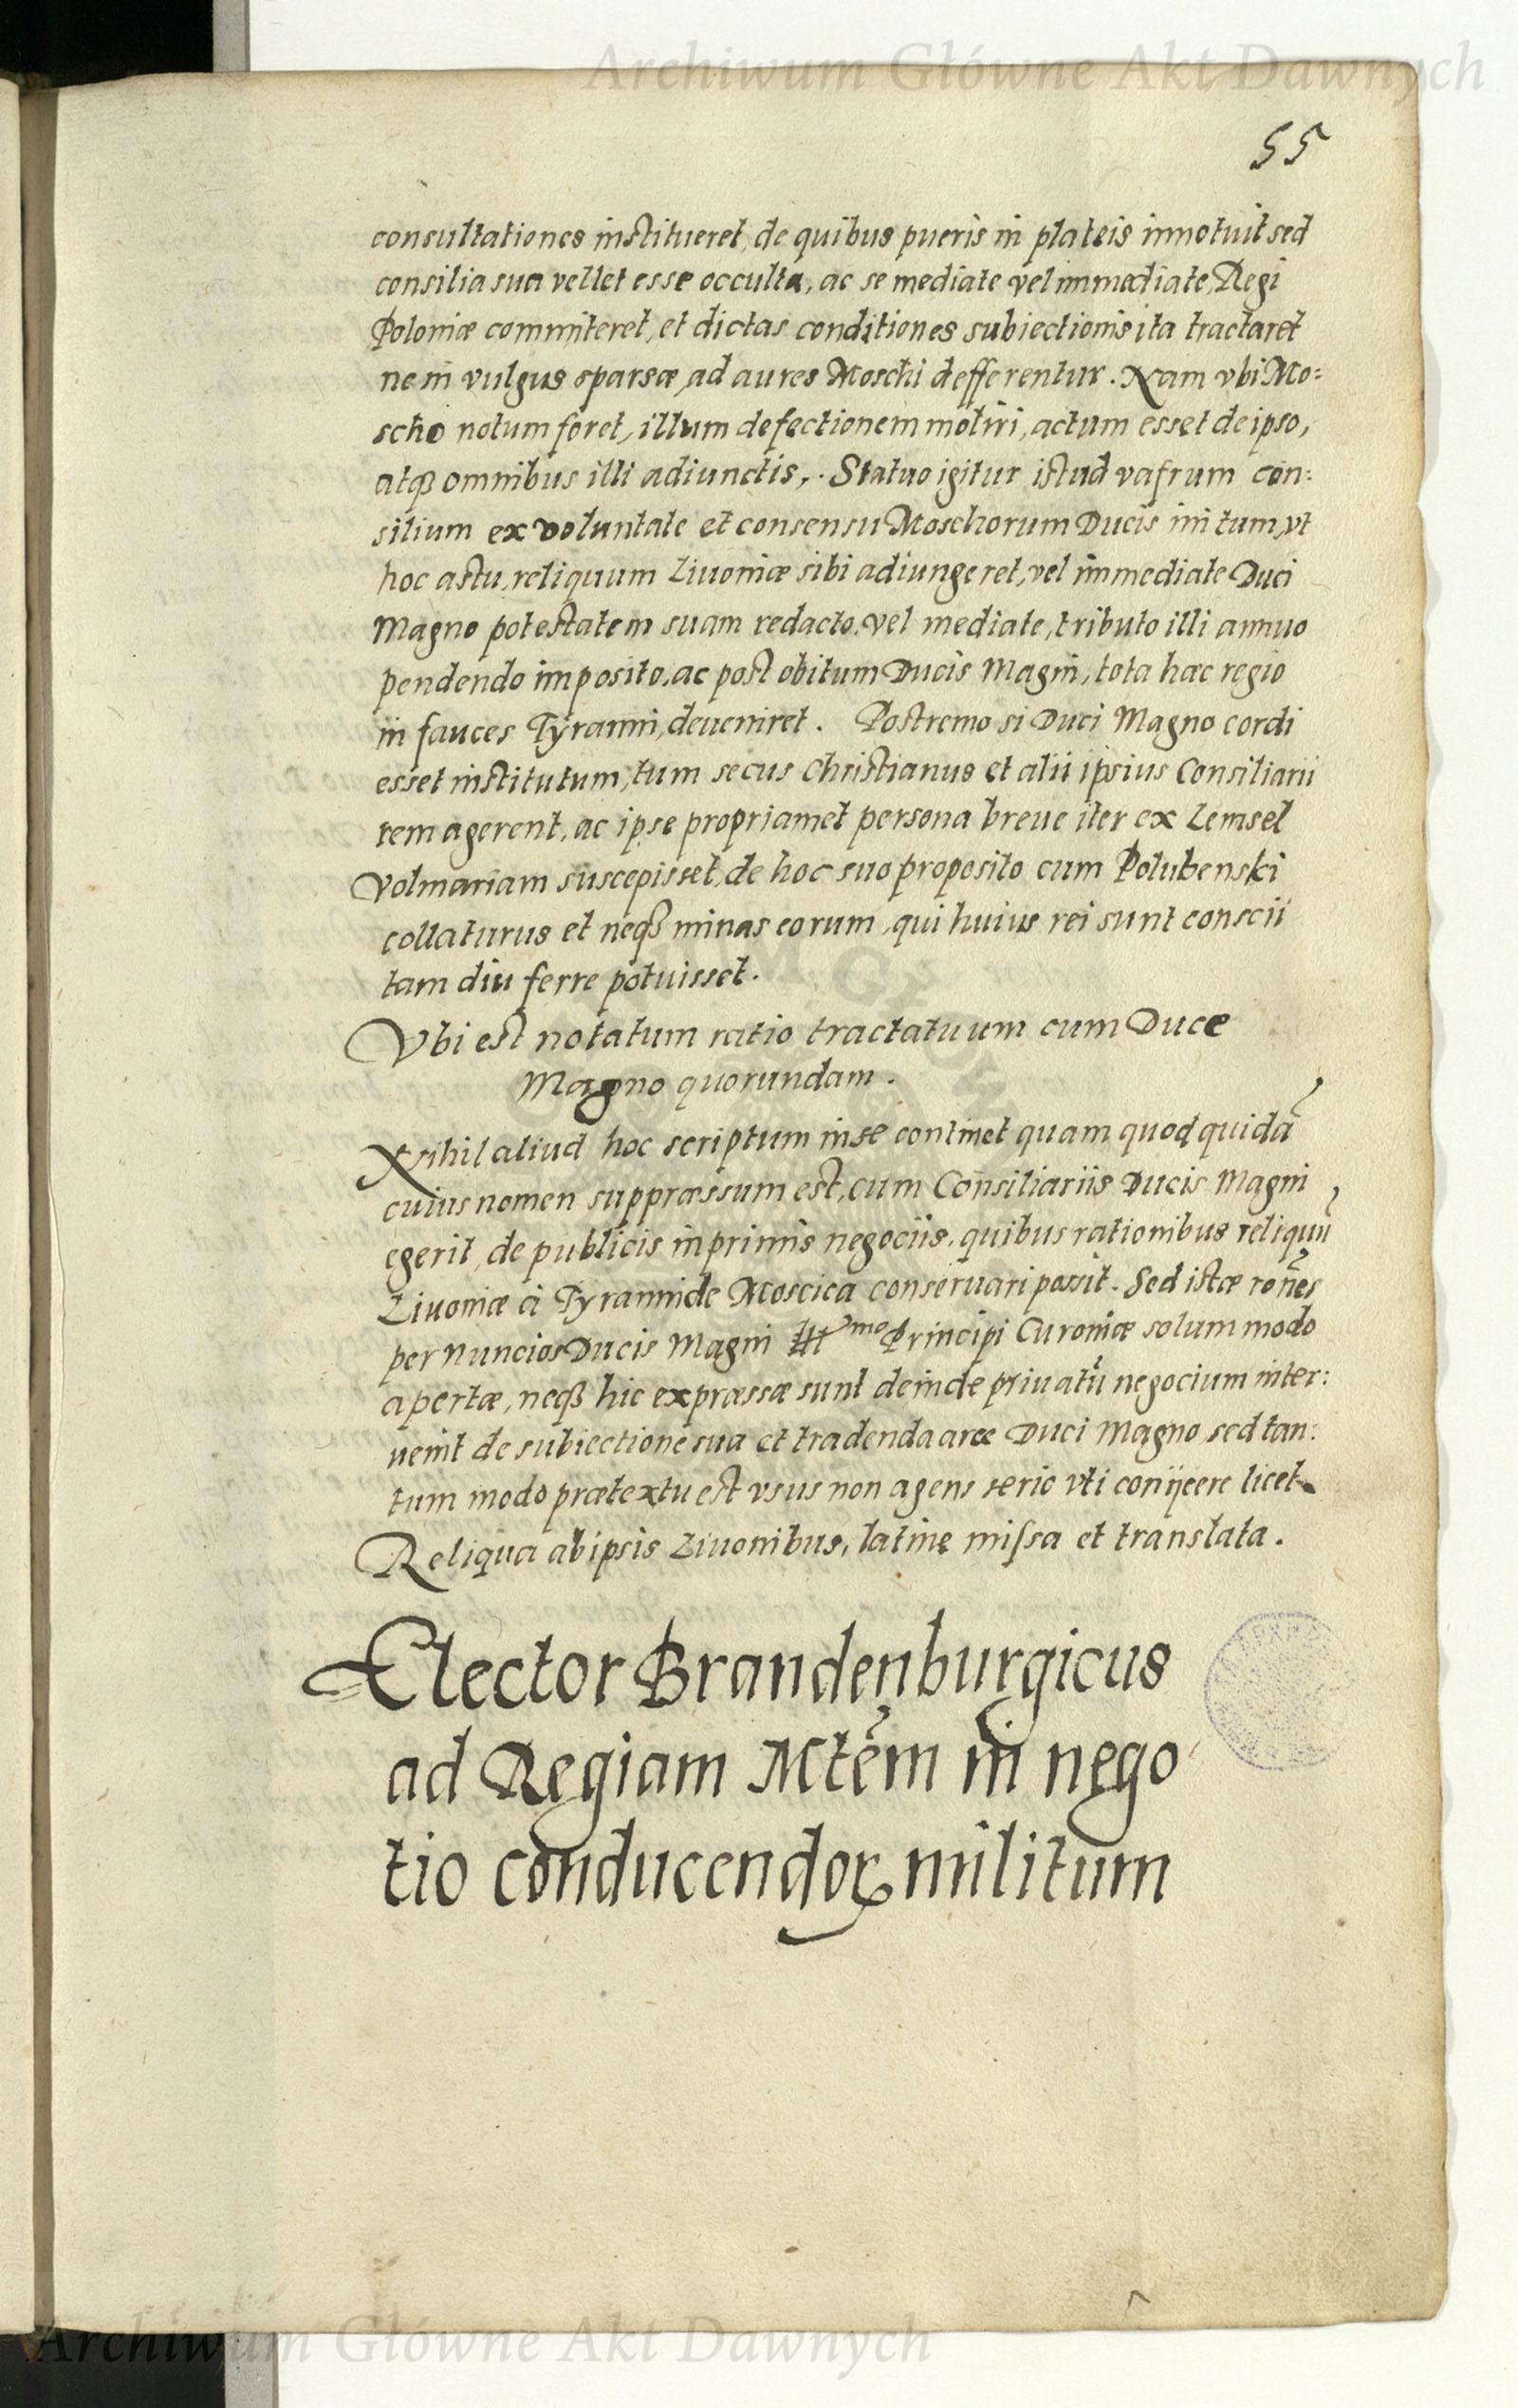 Archiwum Główne Akt Dawnych
55
consultationes institueret, de quibus pueris in plateis innotuit sed
consilia sua vellet esse occulta, ac se mediate vel immediate, Regi
Poloniæ committeret, et dictas conditiones subiectionis ita tractaret
ne in vulgus sparsæ, ad aures Moschi defferentur. Nam vbi Mo:
scho notum foret, illum defectionem moliri, actum esset de ipso,
atqꝫ omnibus illi adiunctis,. Statuo igitur istud vafrum con:
silium ex voluntate et consensu Moschorum Ducis initum, vt
hoc astu, reliquum Liuoniæ sibi adiungeret, vel immediate Duci
Magno potestatem suam redacto, vel mediate, tributo illi annuo
pendendo imposito, ac post obitum Ducis Magni, tota hæc regio
in fauces Tÿranni, deueniret. Postremo si Duci Magno cordi
esset institutum, tum secus Christianus et alii ipsius Consiliarii
rem agerent, ac ipse propriamet persona breue iter ex Lemsel
Volmariam suscepisset, de hoc suo proposito cum Polubenski
collaturus et neqꝫ minas eorum, qui huius rei sunt conscii
tam diu ferre potuisset.
Vbi est notatum ratio tractatuum cum Duce
Magno quorundam.
Nihil aliud hoc scriptum in se continet quam quod quidã
cuius nomen suppræssum est, cum Consiliariis Ducis Magni
egerit, de publicis inprimis negociis, quibus rationibus reliquũ
Liuoniæ à Tyrannide Moscica conseruari possit. Sed istæ rões
per Nuncios Ducis Magni Ill^mo Principi Curoniæ solum modo
apertæ, neqꝫ hic expræssæ sunt deinde priuatũ negocium inter:
uenit de subiectione sua et tradenda arce Duci Magno sed tan:
tum modo prætextu est vsus non agens serio vti coniicere licet.
Reliqua ab ipsis Liuonibus, latinę missa et translata.
Elector Brandenburgicus
ad Regiam Mtẽm in nego
tio conducendoꝝ militum
Archiwum Główne Akt Dawnych